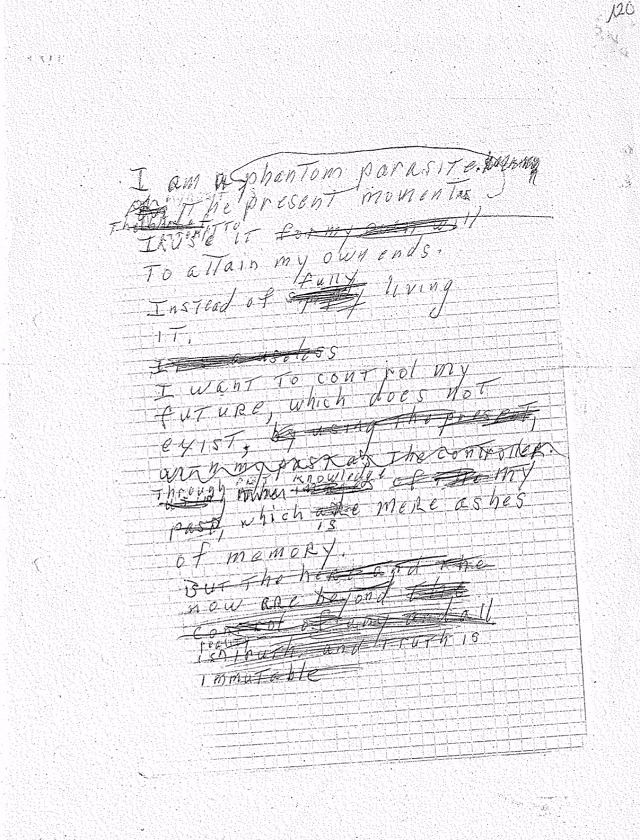 120
I am a phantom parasite.
The present moment
I use it for my own will
To attain my own ends.
fully
Instead of living
it.
I want to control my
future, which does not
exist, by using the present,
my past as the controller.
Through knowledge of my
past, which is mere ashes
of memory.
But the here and the
now are beyond the
control of any and all
truth and truth is
immutable